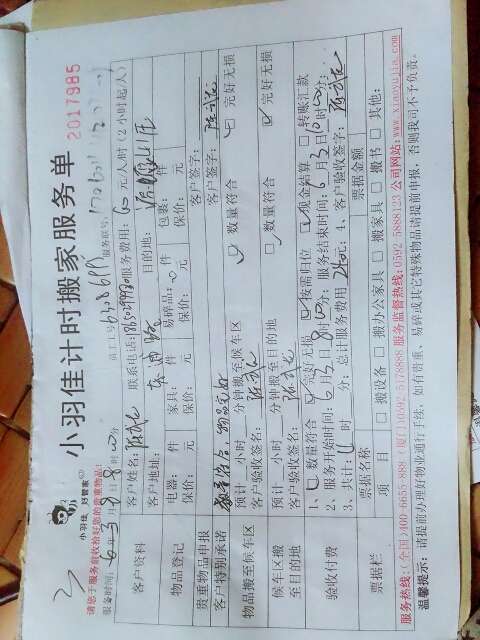 小羽佳 好管家
小羽佳计时搬家服务单
2017985
请您于服务前收拾好您的贵重物品!
服务时间: 6年3月8日8时00分
员工工号
服务联号:
客户资料
客户姓名:
联系电话:
服务费用: 60元/人/时 (2小时起/人)
客户地址:
目的地:
物品登记
电器: 件 家具: 件 易碎品: 件 包裹: 件
保价: 元 保价: 元 保价: 元 保价: 元
贵重物品申报
客户签字:
客户特别承诺
数量符合, 物品完好
客户签字:
物品搬至候车区
预计 小时 分钟搬至候车区
数量符合
完好无损
客户验收签名:
候车区搬至目的地
预计 小时 分钟搬至目的地
数量符合
完好无损
客户验收签名:
验收付费
1、数量符合 完好无损 按需归位 现金结算 转账汇款
2、服务开始时间: 6月3日8时00分; 服务结束时间: 6月3日
3、共计: 4时 分; 总计服务费用 元; 4、客户验收签字:
票据栏
票据名称
票据金额
项目
搬设备 搬办公家具 搬家具 搬书 其他:
服务热线: (全国)400-6655-888 (厦门)0592 5178888 服务监督热线: 0592 5888123 公司网站: www.xiaoyujia.com
温馨提示: 请提前办理好物业通行手续, 如有贵重、易碎或其它特殊物品请提前申报, 否则我司不予负责。